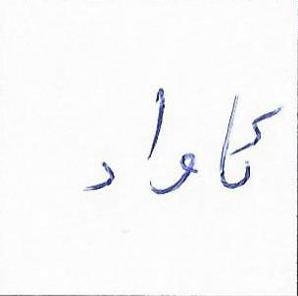 ئاواد